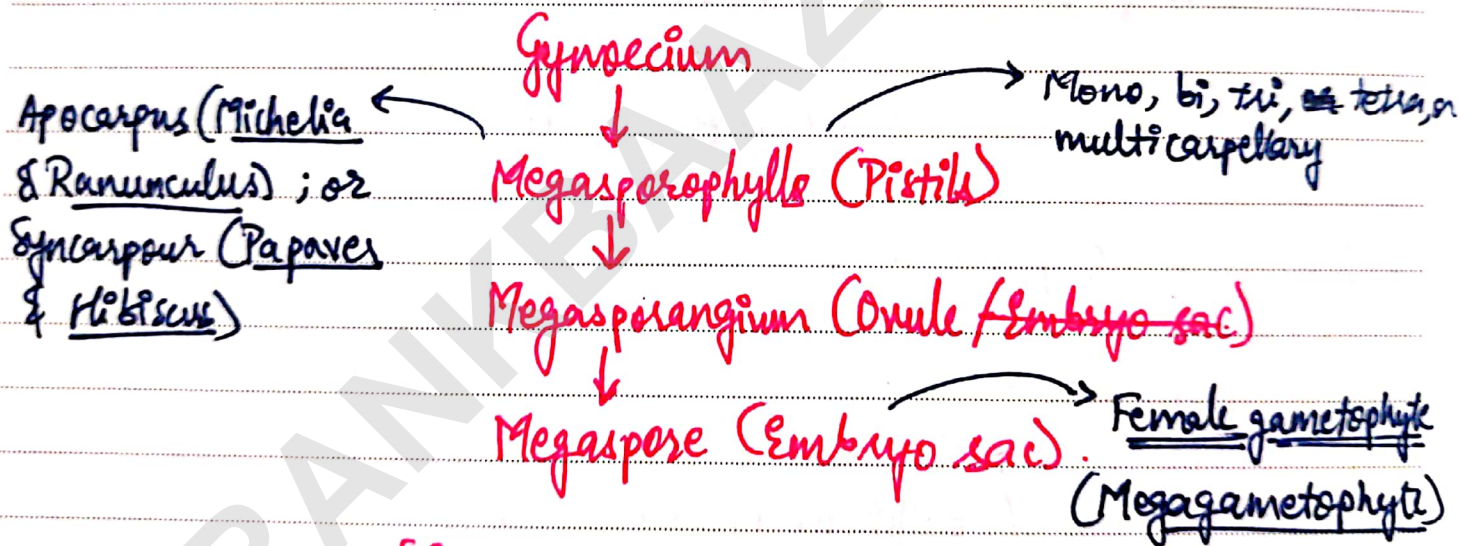 Gynoecium
Apocarpus (Michelia
& Ranunculus) ; or
Syncarpour (Papaver
& Hibiscus)
Mono, bi, tri, tetra, or
multicarpellary
Megasporophylls (Pistils)
Megasporangium (Ovule /Embryo sac)
Megaspore (Embryo sac).
Female gametophyte
(Megagametophyte)
RANKBAAZ